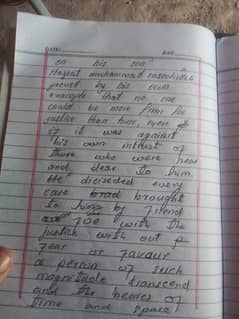 on his son
Hazrat muhammad rasoolullah
proved by his own
example that no one
could be more firm for
justice than him, even
if it was against
his own intrest of
those who were near
and dear to him
He diciseded every
case brad brought
to him by friend
or foe with the
justice with out p
fear or favour
a person of such
magnitude transcend
and the heares of
time and space